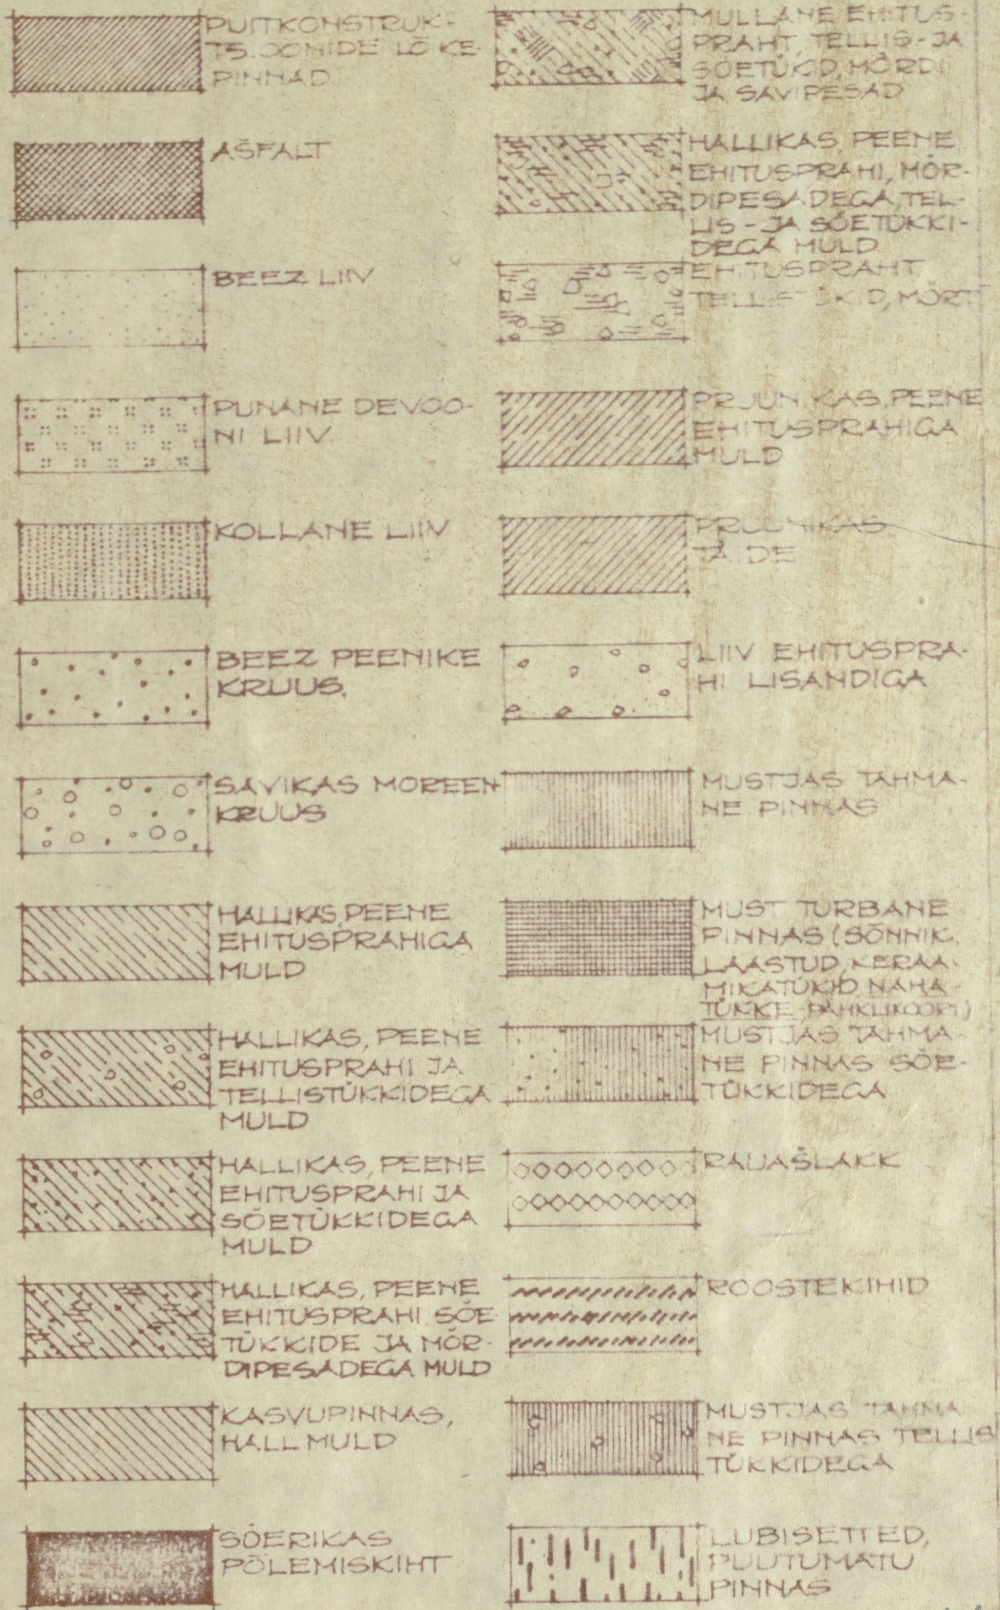 PUITKONSTRUK-
TS.OONIDE LÕIKE-
PINNAD
AŠFALT
BEEZ LIIV
PUNANE DEVOO-
NI LIIV.
KOLLANE LIIV
BEEZ PEENIKE
KRUUS.
SAVIKAS MOREEN
KRUUS
HALLIKAS, PEENE
EHITUSPRAHIGA
MULD
HALLIKAS, PEENE
EHITUSPRAHI JA
TELLISTÜKKIDEGA
MULD
HALLIKAS, PEENE
EHITUSPRAHI JA
SÖETÜKKIDEGA
MULD
HALLIKAS, PEENE
EHITUSPRAHI SÖE-
TÜKKIDE JA MÖR-
DIPESADEGA MULD
KASVUPINNAS,
HALL MULD
SÖERIKAS
PÕLEMISKIHT
MULLANE EHITUS-
PRAHT, TELLIS-JA
SÖETÜKID, MÖRDI
JA SAVIPESAD
HALLIKAS, PEENE
EHITUSPRAHI, MÖR-
DIPESADEGA, TEL-
LIS-JA SÖETÜKKI-
DEGA MULD
EHITUSPRAHT
TELLISTÜKID, MÖRT
PRUUNIKAS, PEENE
EHITUSPRAHIGA
MULD
PRUUNIKAS
TÄIDE
LIIV EHITUSPRA-
HI LISANDIGA
MUSTJAS TAHMA-
NE PINNAS
MUST TURBANE
PINNAS (SÕNNIK,
LAASTUD, KERAA-
MIKATÜKID, NAHA-
TÜKKE, PÄHKLIKOORI)
MUSTJAS TAHMA-
NE PINNAS SÖE-
TÜKKIDEGA
RAUAŠLAKK
ROOSTEKIHID
MUSTJAS TAHMA
NE PINNAS TELLIS
TÜKKIDEGA
LUBISETTED,
PUUTUMATU
PINNAS